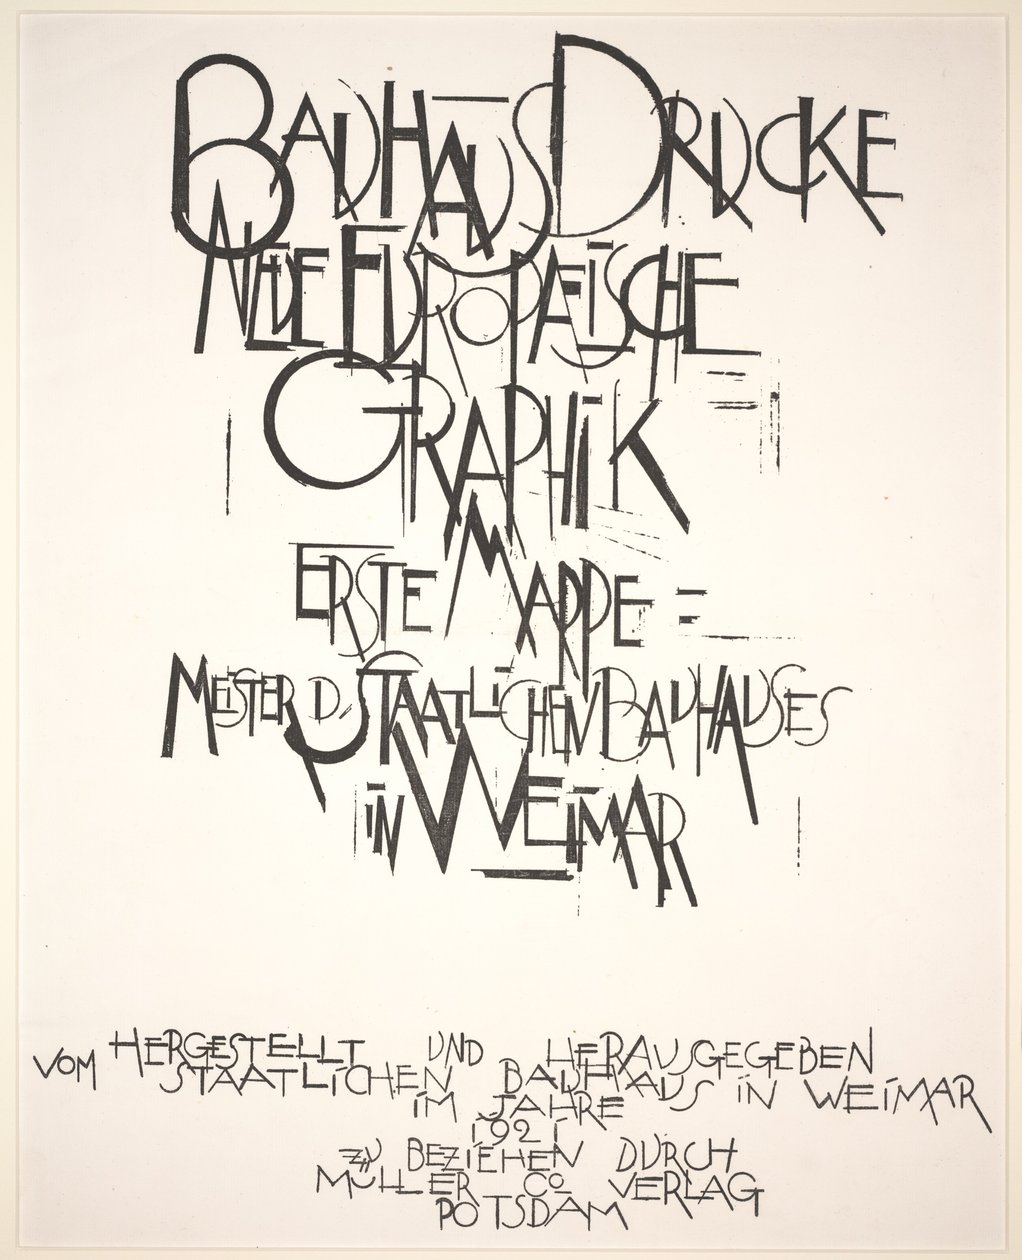 BAUHAUS DRUCKE
NEUE EUROPAEISCHE
GRAPHIK
ERSTE MAPPE =
MEISTER D. STAATLICHEN BAUHAUSES
IN WEIMAR
HERGESTELLT UND HERAUSGEGEBEN
VOM STAATLICHEN BAUHAUS IN WEIMAR
IM JAHRE
1921
ZU BEZIEHEN DURCH
MÜLLER & CO VERLAG
POTSDAM